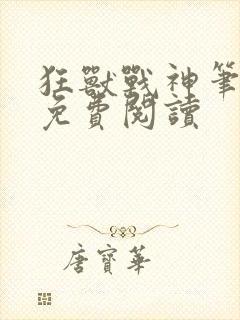 狂獸戰神筆
免費閱讀
唐寶華